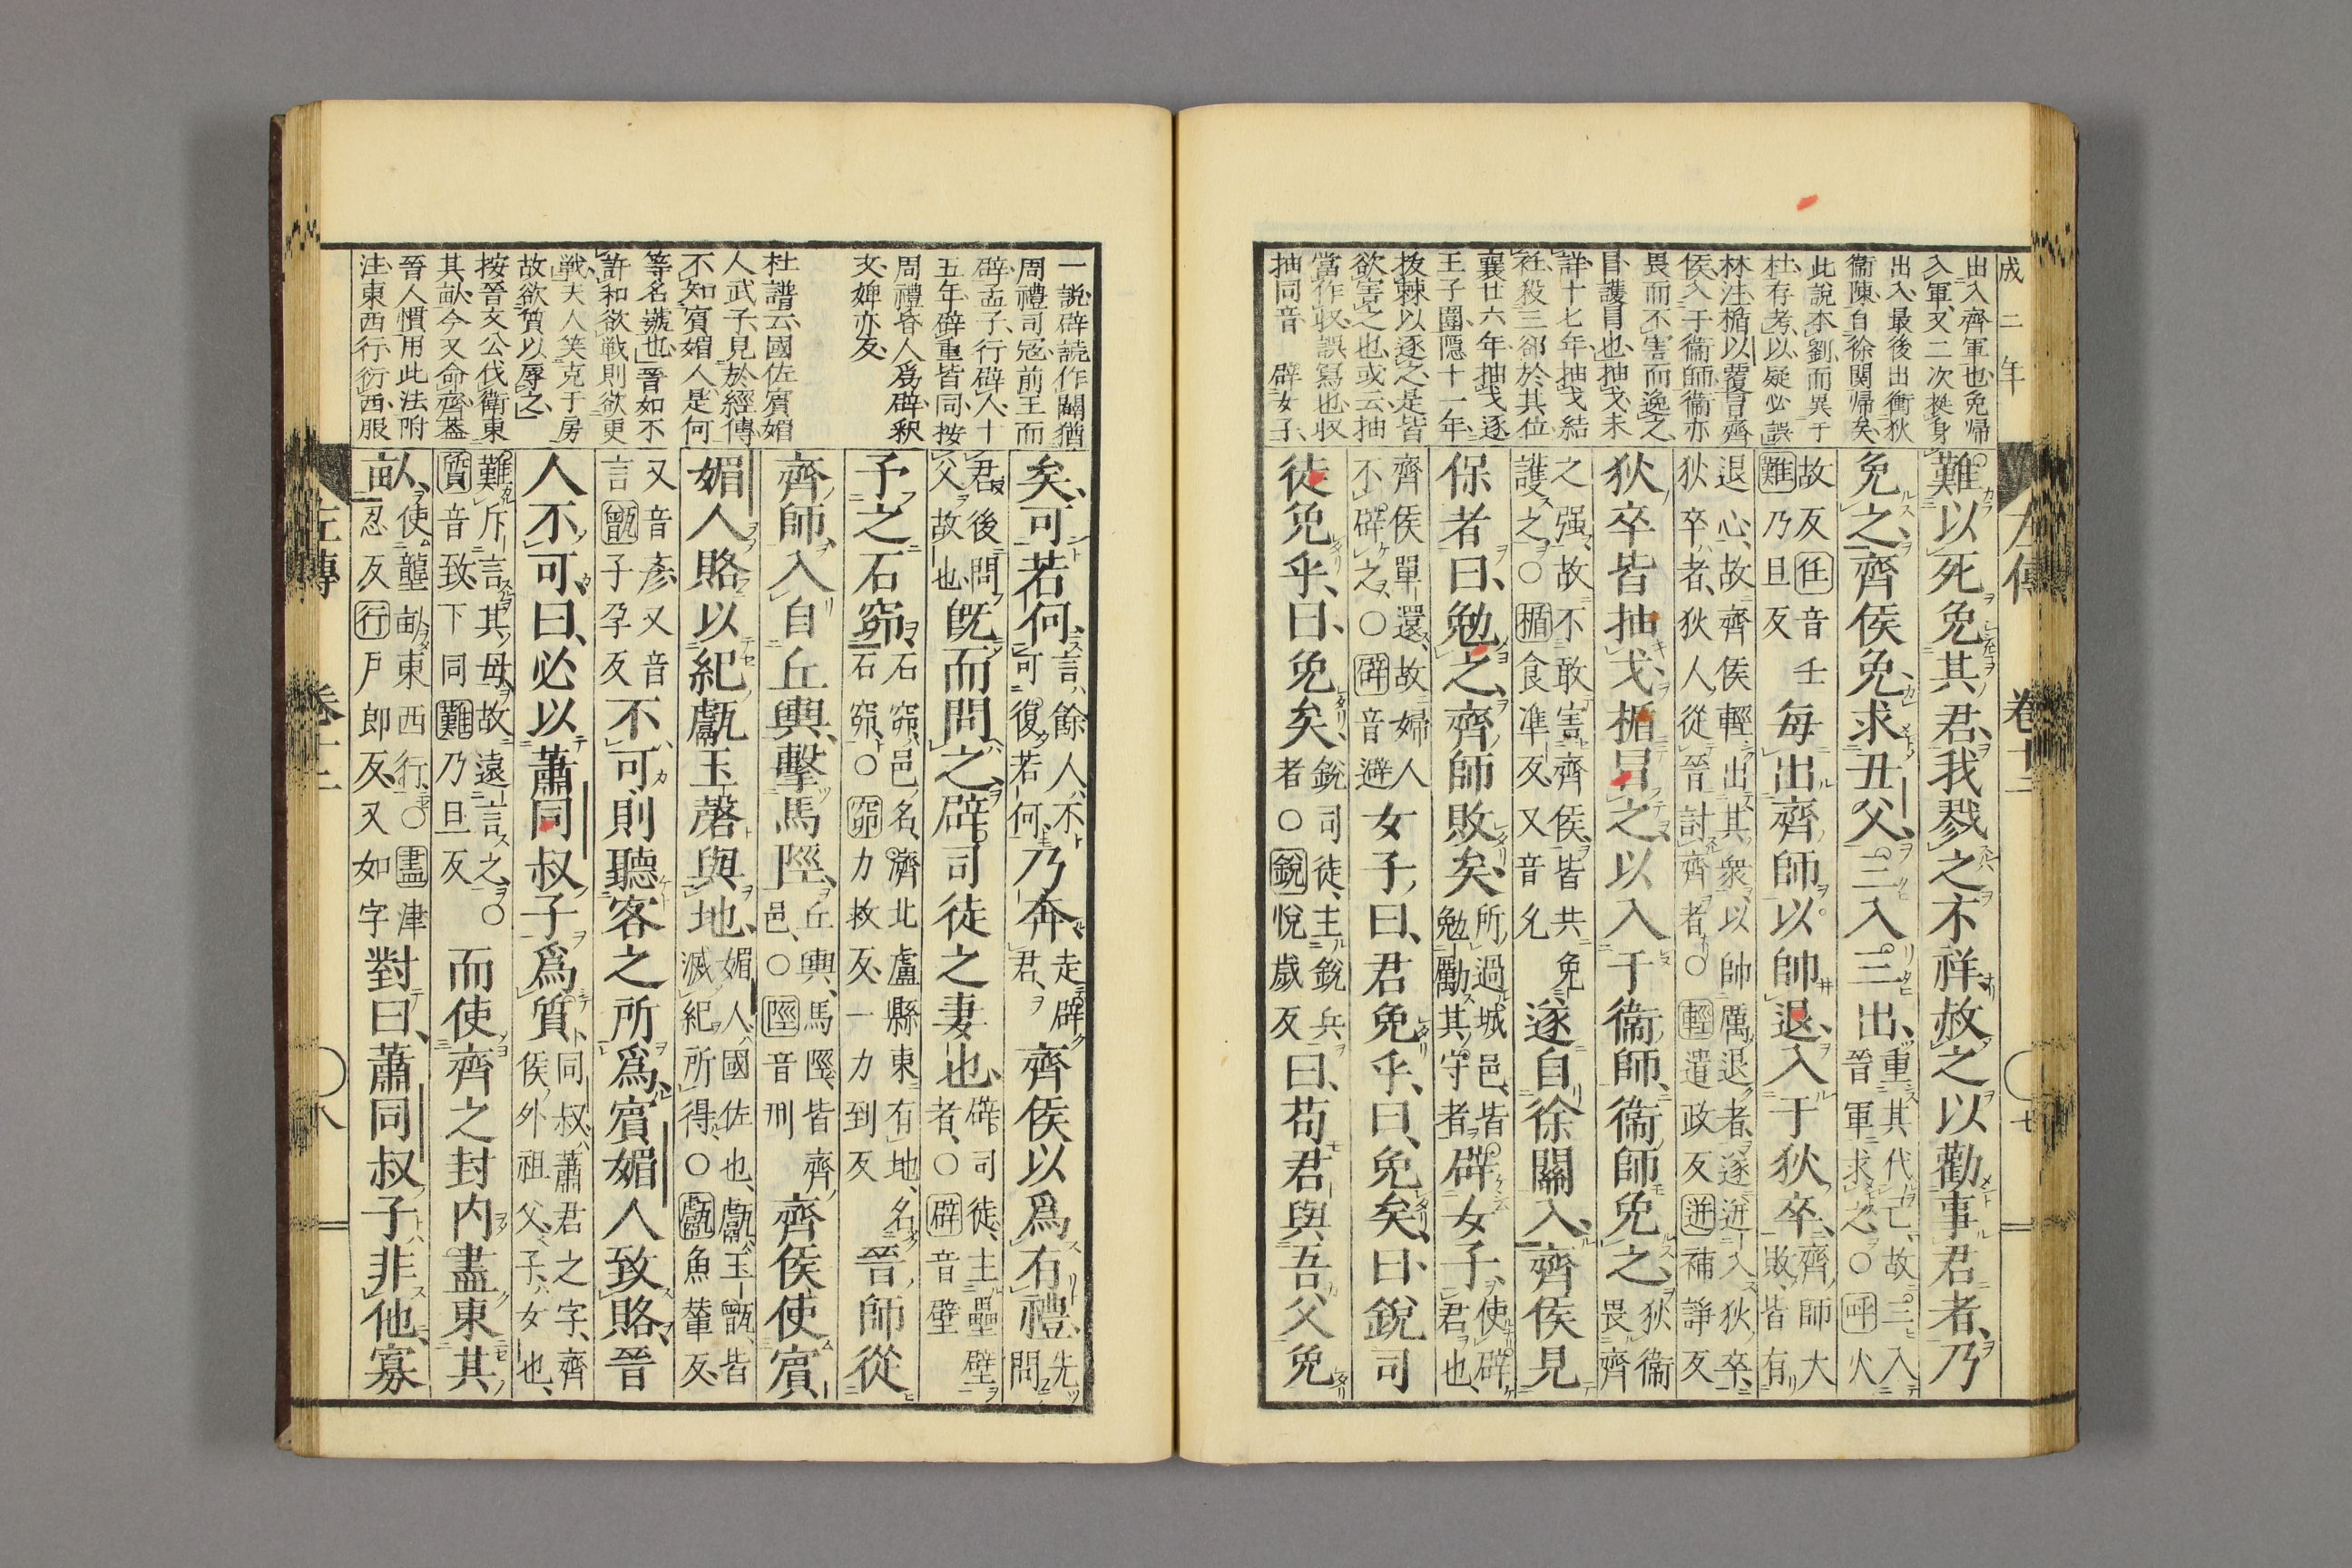 成二年
出入齊軍也免歸
入軍又二次挺身
出入最後出衝狄
衞陳自徐関帰矣
此說本劉而異于
杜存考以疑必誤
林注楯以覆冒齊
侯入于衞師衞亦
畏而不害而逸之
冒護冒也抽戈未
詳十七年抽戈結
衽殺三郤於其位
襄廿六年抽戈逐
王子圍隱十一年
抜棘以逐之是皆
欲害之也或云抽
當作収誤寫也収
抽同音 辟女子
左傳 卷十二 七
難以死免其君我戮之不祥赦之以勸事君者乃
免之齊侯免求丑父三入三出
重其代己故三入
晉軍求之○呼火
故反任音壬
難乃旦反
每出齊師以帥退入于狄卒
齊師大
敗皆有
退心故齊侯輕出其衆以帥厲退者遂迸入狄卒
狄卒者狄人從晉討齊者○輕遣政反迸補諍反
狄卒皆抽戈楯冒之以入于衞師衞師免之
狄衞
畏齊
之强故不敢害齊侯皆共免
護之○楯食準反又音允
遂自徐關入齊侯見
保者曰勉之齊師敗矣
所過城邑皆
勉勵其守者
辟女子
使辟
君也
齊侯單還故婦人
不辟之○辟音避
女子曰君免乎曰免矣曰銳司
徒免乎曰免矣
銳司徒主銳兵
者○銳悅歲反
曰苟君與吾父免
一說辟読作闢猶
周禮司冦前王而
辟孟子行辟人十
五年辟重皆同按
周禮昏人爲辟釈
文婢亦反
杜譜云國佐賔媚
人武子見於經傳
不知賔媚人是何
等名號也晉如不
許和欲戦則欲更
戦夫人笑克于房
故欲質以辱之
按晉文公伐衛東
其畝今又命齊葢
晉人慣用此法附
注東西行衍西服
矣可若何
言餘人不
可復若何
乃奔
走辟
君
齊侯以爲有禮
先
問
君後問
父故也
既而問之辟司徒之妻也
辟司徒主壘壁
者○辟音壁
予之石窌
石窌邑名濟北盧縣東有地名
石窌○窌力救反一力到反
晉師從
齊師入自丘輿擊馬陘
丘輿馬陘皆齊
邑○陘音刑
齊侯使賔
媚人賂以紀甗玉磬與地
媚人國佐也甗玉甑皆
滅紀所得○甗魚輦反
又音彥又音
言甑子孕反
不可則聽客之所爲賔媚人致賂晉
人不可曰必以蕭同叔子爲質
同叔蕭君之字齊
侯外祖父子女也
難斥言其母故遠言之○
質音致下同難乃旦反
而使齊之封内盡東其
畝
使壟畝東西行○盡津
忍反行戸郎反又如字
對曰蕭同叔子非他寡
左傳 卷十二 八